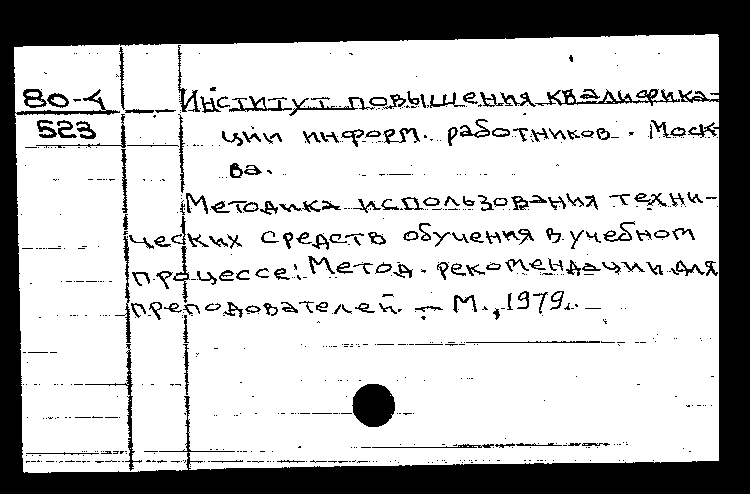 80-4
523
Институт повышения квалифика-
ции информ. работников. Моск
ва.
Методика использования техни-
ческих средств обучения в учебном
процессе: Метод. рекомендации для
преподователей. — М., 1979.